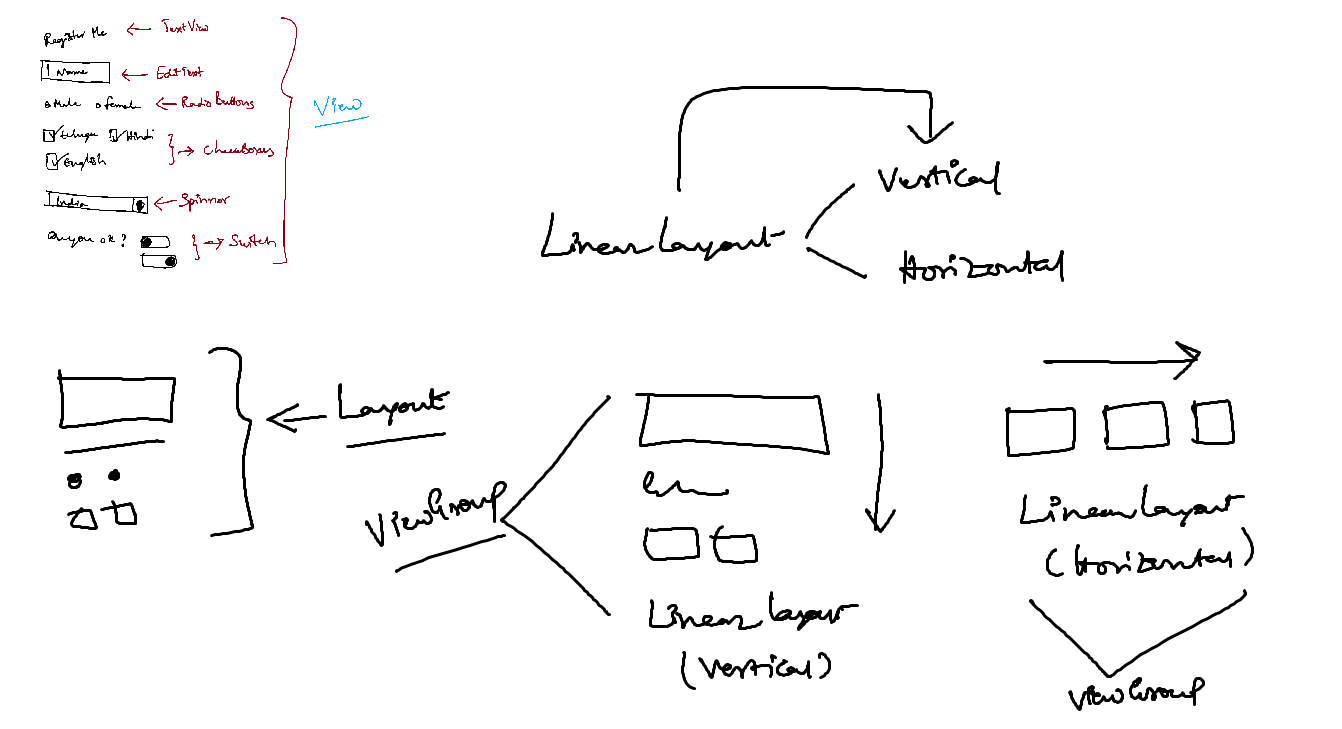 Register Me ← TextView
Name ← EditText
Male Female ← Radio Buttons
Telugu Hindi
English → CheckBoxes
India ← Spinner
Are you ok? → Switch
View
Vertical
Linear Layout
Horizontal
Layout
ViewGroup
Linear Layout
(Vertical)
Linear Layout
(Horizontal)
ViewGroup